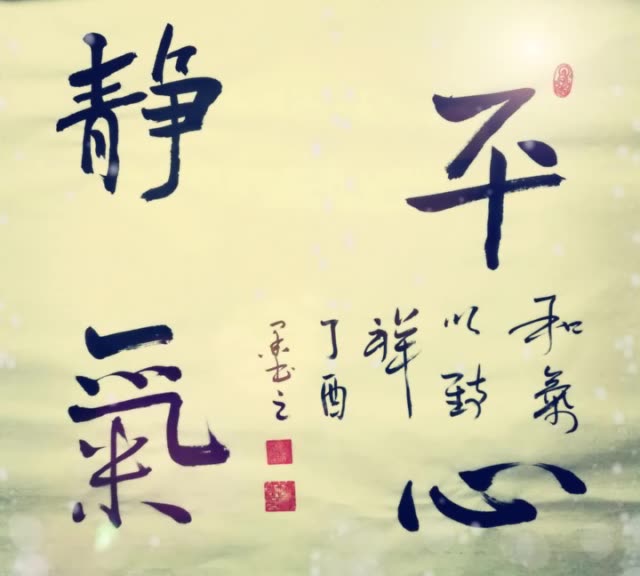 平心
静氣
和氣
以致
祥
丁酉